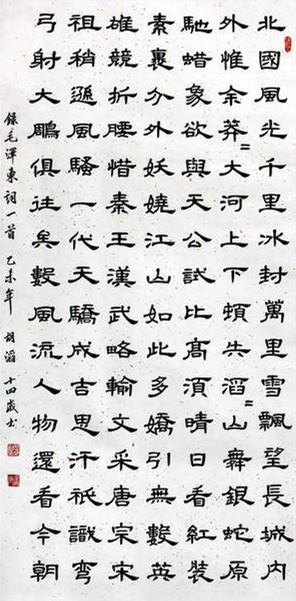 北國風光千里冰封萬里雪飄望長城內
外惟余莽〻大河上下頓失滔〻山舞銀蛇原
馳蜡象欲與天公試比高須晴日看紅裝
素裹分外妖嬈江山如此多嬌引無數英
雄競折腰惜秦王漢武略輸文采唐宗宋
祖稍遜風騷一代天驕成吉思汗祇識彎
弓射大鵰俱往矣數風流人物還看今朝
錄毛澤東詞一首 乙未年 胡滔 十四歲書